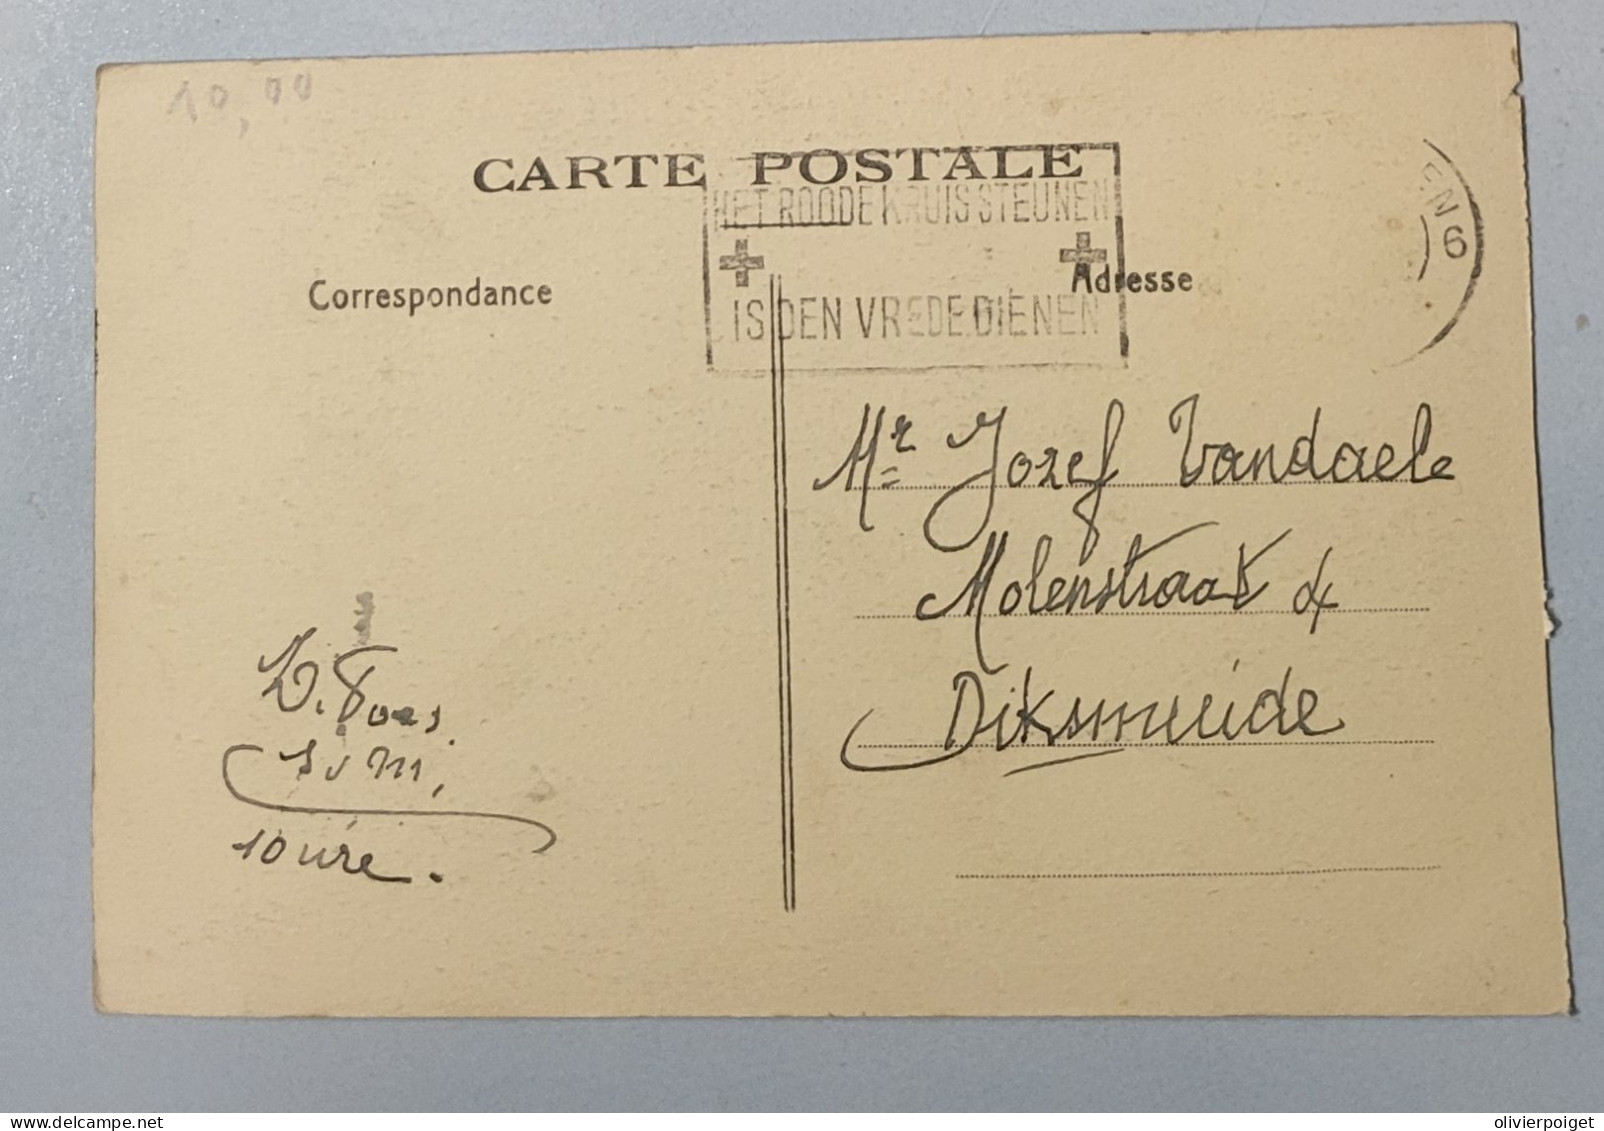 10,00
CARTE POSTALE
HET ROODE KRUIS STEUNEN
IS DEN VREDE DIENEN
EN 6
Correspondance
Adresse
Mr Jozef Vandaele
Molenstraat
Diksmuide
olivierpoiget